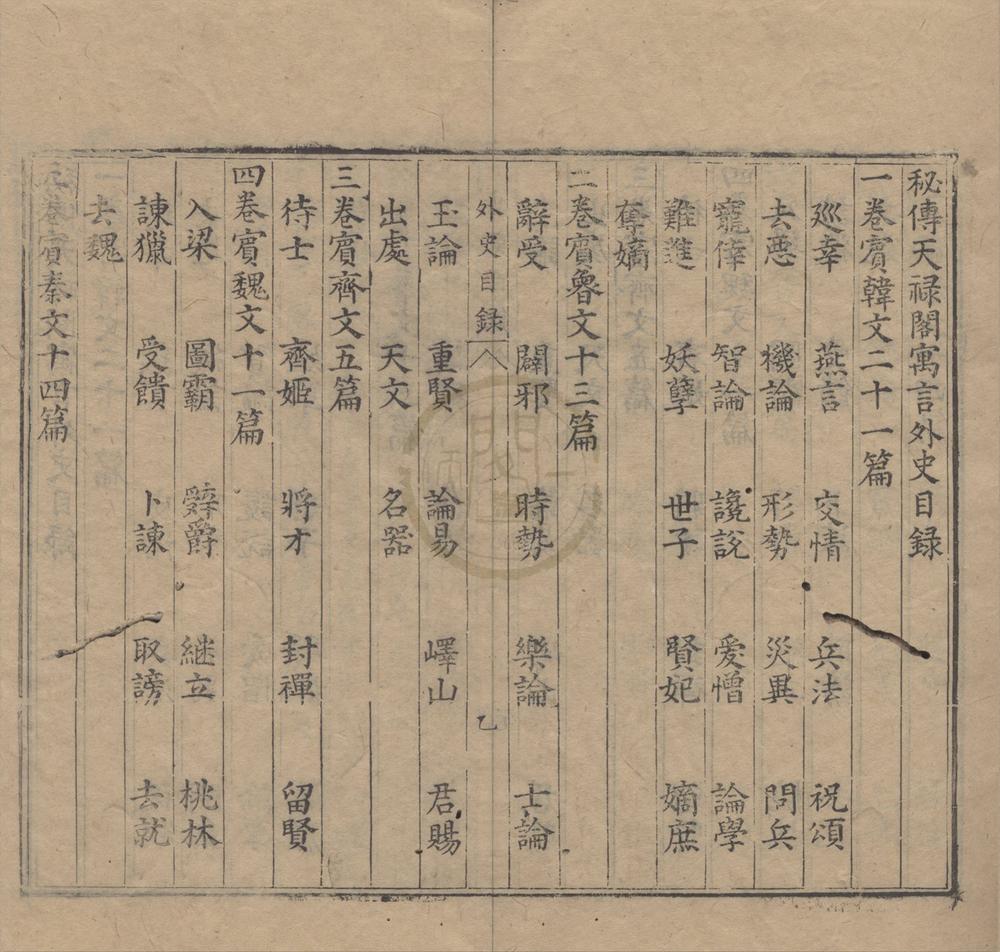 秘傳天禄閣寓言外史目録
一卷賓韓文二十一篇
巡幸 燕言 交情 兵法 祝頌
去惡 機論 形勢 災異 問兵
寵倖 智論 讒説 愛憎 論學
難進 妖孽 世子 賢妃 嫡庶
奪嫡
二卷賓魯文十三篇
辭受 闢邪 時勢 樂論 士論
外史目録 乙
玉論 重賢 論易 嶧山 君賜
出處 天文 名器
三卷賓齊文五篇
待士 齊姬 將才 封禪 留賢
四卷賓魏文十一篇
入梁 圖霸 辭爵 継立 桃林
諌獵 受饋 卜諌 取謗 去就
去魏
五卷賓秦文十四篇